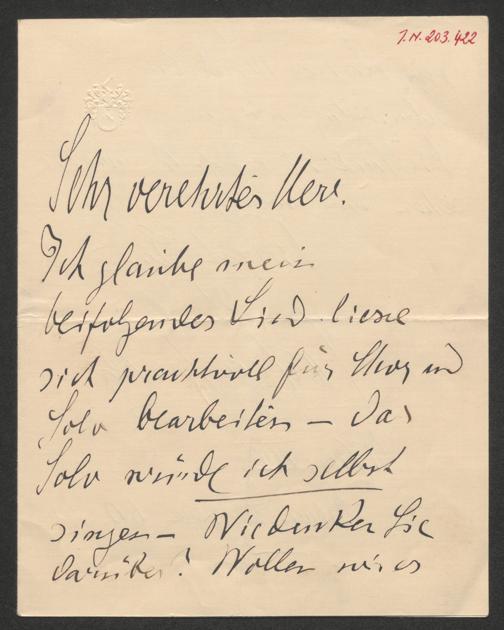 J.N. 203.422
Sehr verehrter Herr.
Ich glaube mein
beifolgendes Lied liese
sich prachtvoll für Chor und
Solo bearbeiten – das
Solo würde ich selbst
singen – Wie denken Sie
darüber? Wollen wir es